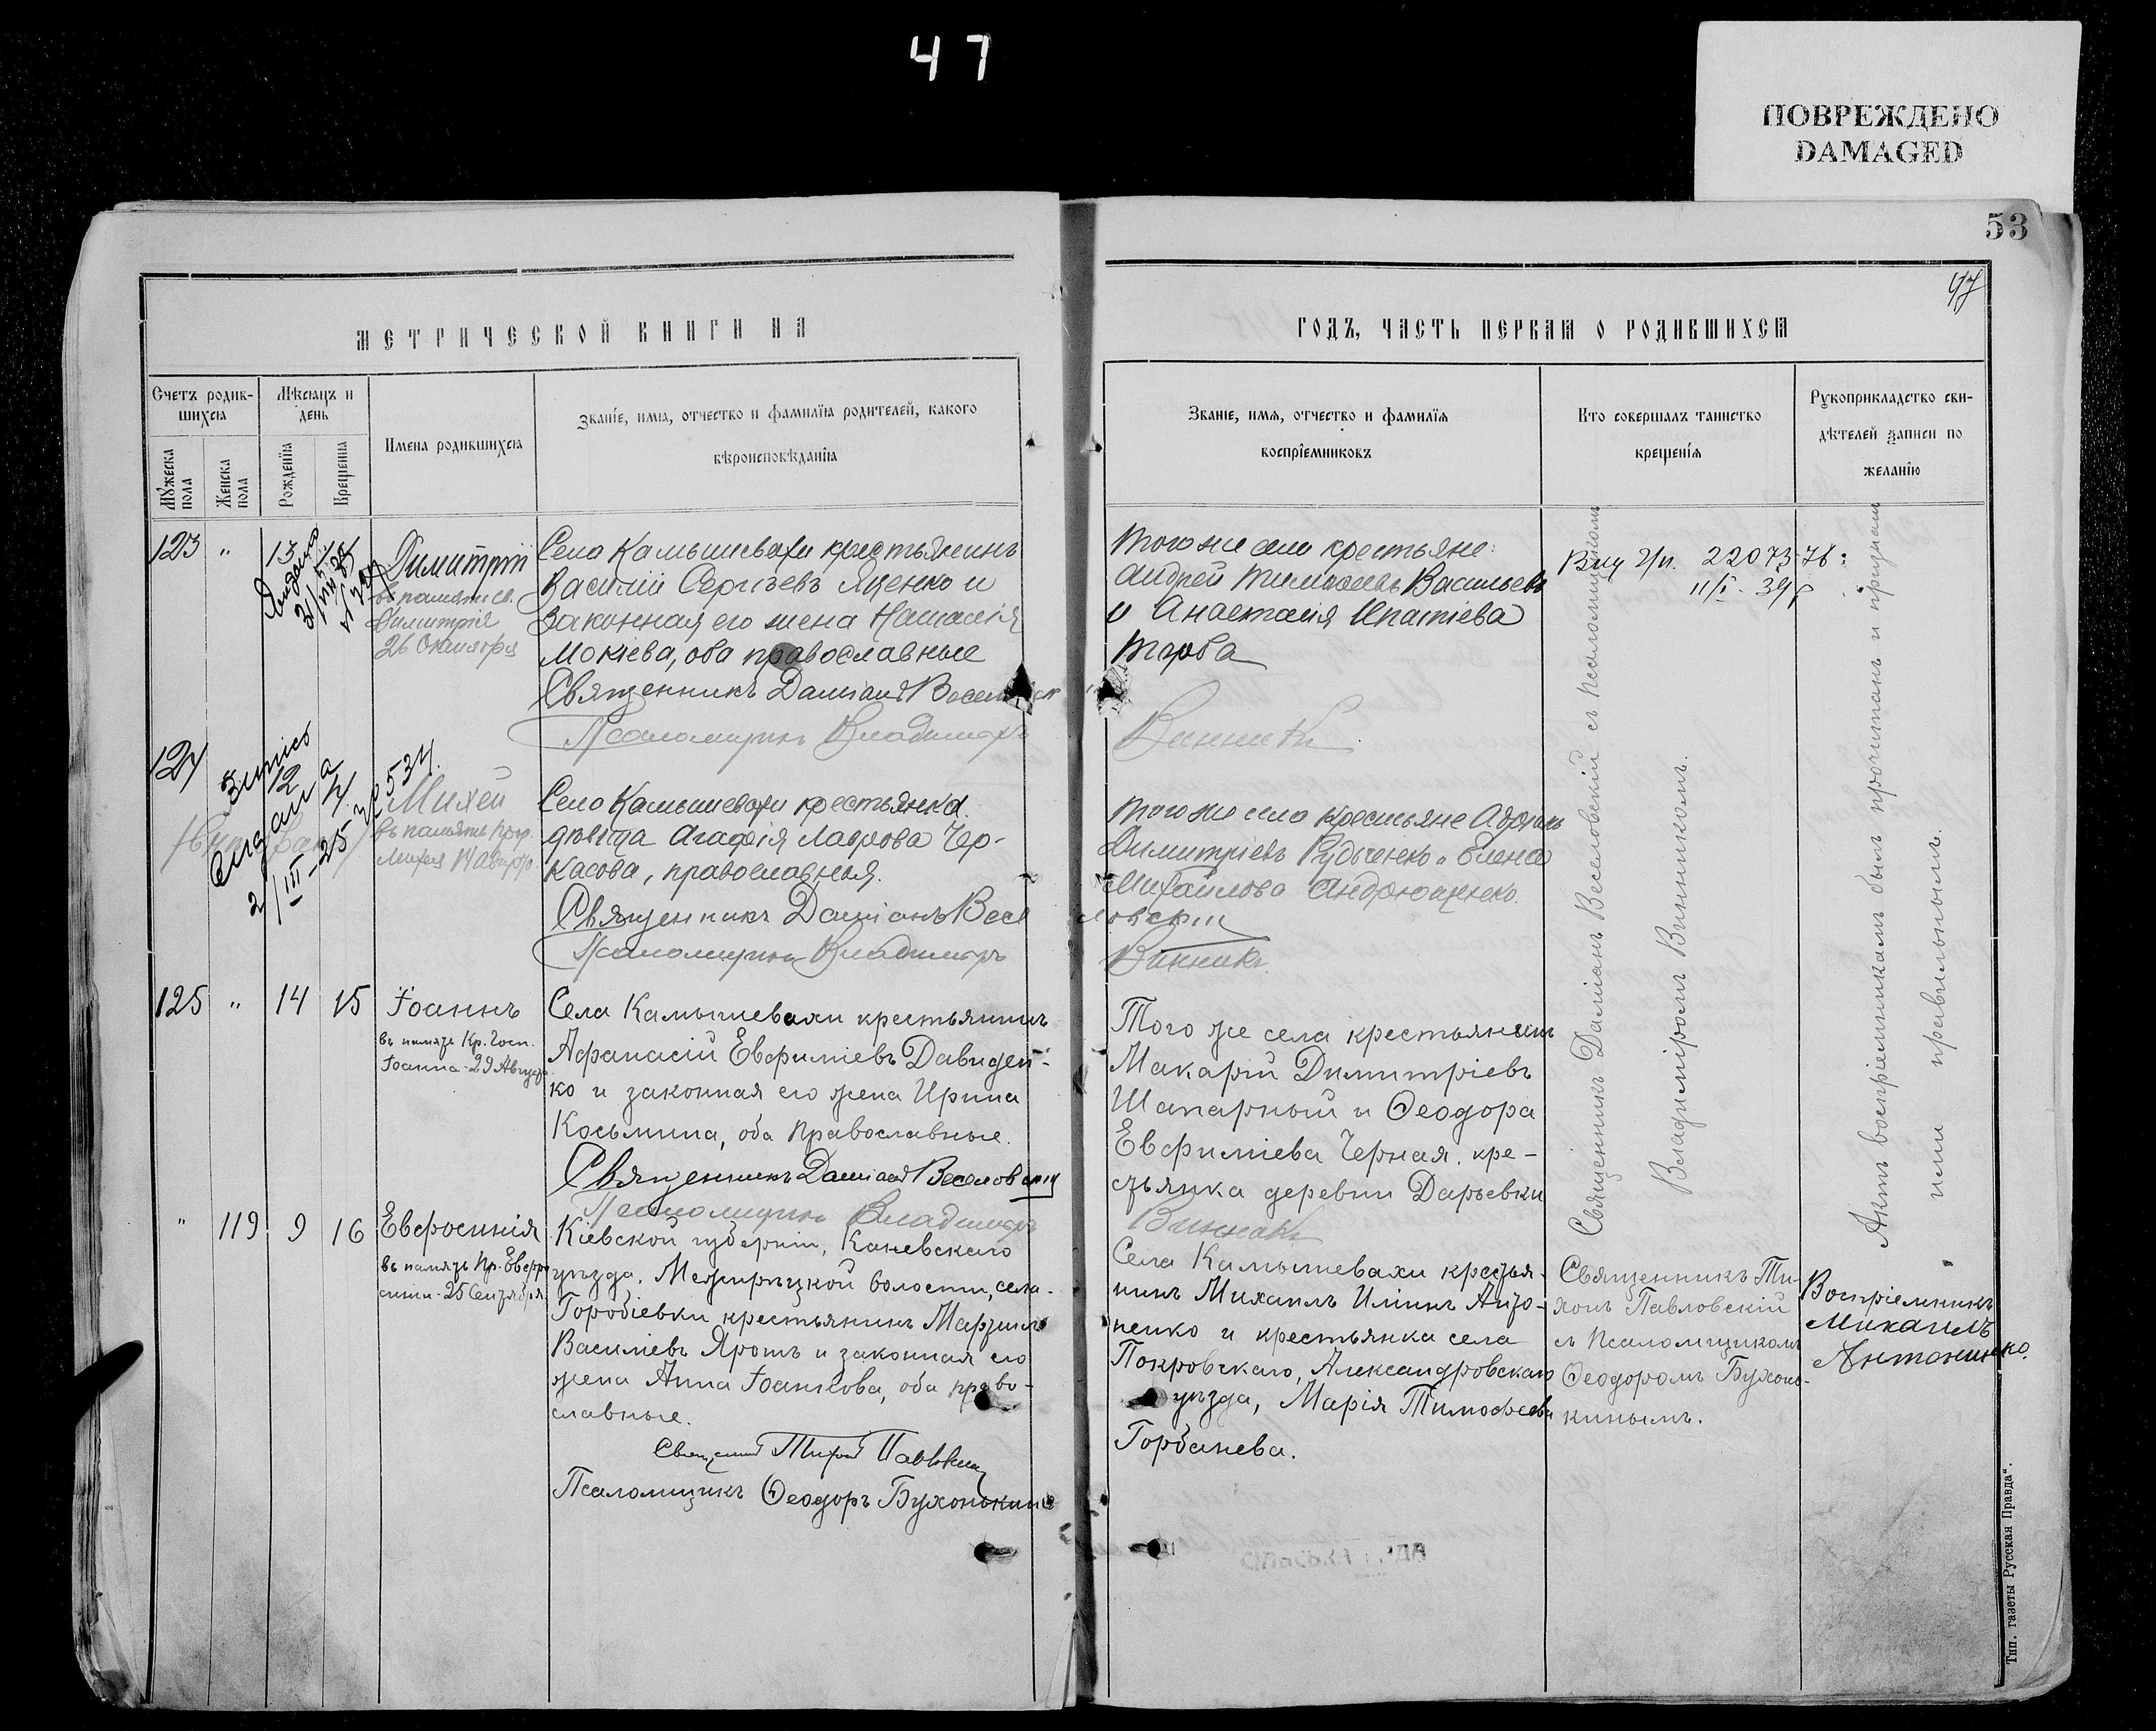 47
ПОВРЕЖДЕНО
DAMAGED
53
97
МЕТРИЧЕСКОЙ КНИГИ НА
ГОДЪ, ЧАСТЬ ПЕРВАЯ О РОДИВШИХСЯ
Счетъ родив-
шихся
Мужеска пола
Женска пола
Мѣсяцъ и
день
Рожденія
Крещенія
Имена родившихся
Званіе, имя, отчество и фамилія родителей, какого
вѣроисповѣданія
Званіе, имя, отчество и фамилія
воспріемниковъ
Кто совершалъ таинство
крещенія
Рукоприкладство сви-
дѣтелей записи по
желанію
123 " 13
Димитрій
въ память св.
Димитрія
26 Октября
Села Камышевахи крестьянинъ
Василій Сергіевъ Яценко и
законная его жена Наталія
Мокіева, оба православные
Священникъ Даміанъ
Псаломщикъ Владиміръ
Того же села крестьяне:
Андрей Васильевъ
и Анастасія Ипатіева
Винникъ
22073 78
11/I - 39 р
124
12
2/III-25
534
Михей
въ память прор.
Михея 14 Августа
Села Камышевахи крестьянка
дѣвица Агафія Лаврова Чер-
касова, православная.
Священникъ Даміанъ Весе
ловскій
Псаломщикъ Владиміръ
Того же села крестьяне
Димитріевъ Рудченко и Елена
Михайлова Андрющенко.
Винникъ
125 " 14 15
Іоаннъ
въ память Кр. Госп.
Іоанна - 29 Августа
Села Камышевахи крестьянинъ
Афанасій Евфиміевъ Давиден-
ко и законная его жена Ирина
Косьмина, оба Православные.
Священникъ Даміанъ Веселовскій
Псаломщикъ Владиміръ
Того же села крестьянинъ
Макарій Димитріевъ
Шапарный и Ѳеодора
Евфиміева Черная, кре-
стьянка деревни Дарьевки
Винникъ
Священникъ Даміанъ Веселовскій съ псаломщикомъ
Владиміромъ Винникомъ.
Актъ воспріемникамъ былъ прочитанъ и признанъ
ими правильнымъ.
" 119 9 16
Евфросинія
въ память Пр. Евфро
синіи - 25 Сентября
Кіевской губерніи, Каневскаго
уѣзда, Межирѣцкой волости, села
Горобіевки крестьянинъ Мартинъ
Василіевъ Ярошъ и законная его
жена Анна Іоаннова, оба право-
славные.
Священникъ Тихонъ Павловскій
Псаломщикъ Ѳеодоръ Бухонькинъ
Села Камышевахи крестья-
нинъ Михаилъ Иліинъ Анто-
ненко и крестьянка села
Покровскаго, Александровскаго
уѣзда, Марія Тимофеева
Горбанева.
Священникъ Ти-
хонъ Павловскій
съ Псаломщикомъ
Ѳеодоромъ Бухонь-
кинымъ.
Воспріемникъ
Михаилъ
Антоненко.
Тип. газеты Русская Правда".